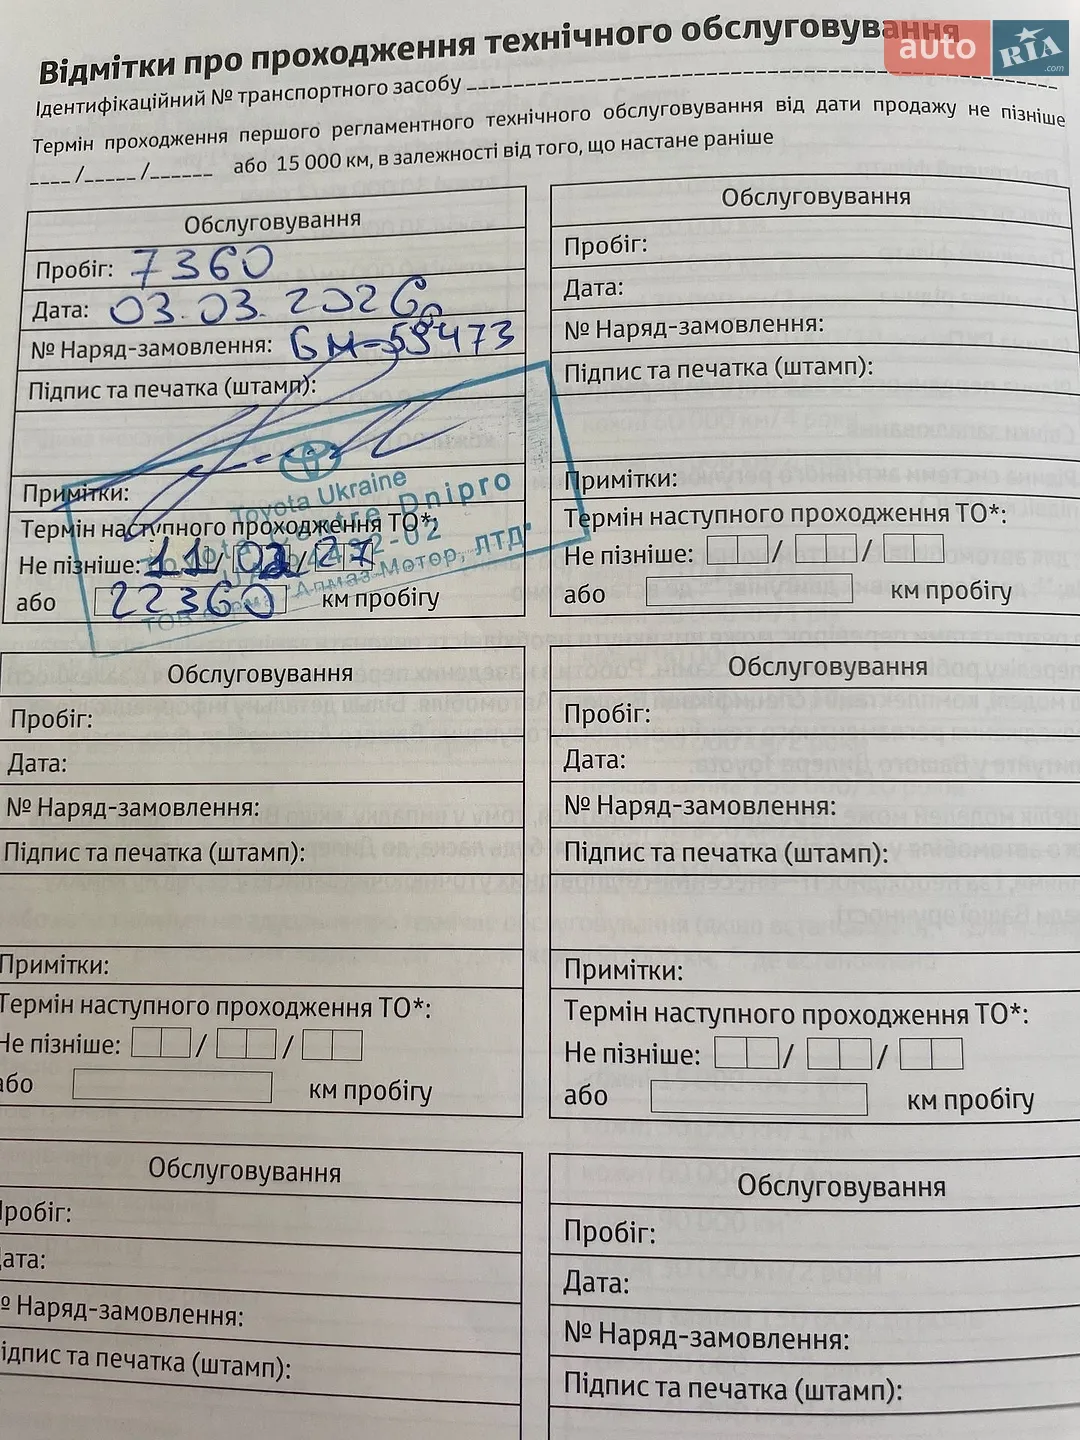 auto RIA.com
Відмітки про проходження технічного обслуговування
Ідентифікаційний № транспортного засобу
Термін проходження першого регламентного технічного обслуговування від дати продажу не пізніше
/ / або 15 000 км, в залежності від того, що настане раніше
Обслуговування
Пробіг: 7360
Дата: 03.03.2026
№ Наряд-замовлення: 59473
Підпис та печатка (штамп):
Примітки:
Toyota Ukraine
Toyota Centre Dnipro
Алмаз-Мотор, ЛТД"
Термін наступного проходження ТО*:
Не пізніше: 11/ /27
або 22360 км пробігу
Обслуговування
Пробіг:
Дата:
№ Наряд-замовлення:
Підпис та печатка (штамп):
Примітки:
Термін наступного проходження ТО*:
Не пізніше: / /
або км пробігу
Обслуговування
Пробіг:
Дата:
№ Наряд-замовлення:
Підпис та печатка (штамп):
Примітки:
Термін наступного проходження ТО*:
Не пізніше: / /
або км пробігу
Обслуговування
Пробіг:
Дата:
№ Наряд-замовлення:
Підпис та печатка (штамп):
Примітки:
Термін наступного проходження ТО*:
Не пізніше: / /
або км пробігу
Обслуговування
Пробіг:
Дата:
№ Наряд-замовлення:
Підпис та печатка (штамп):
Обслуговування
Пробіг:
Дата:
№ Наряд-замовлення:
Підпис та печатка (штамп):